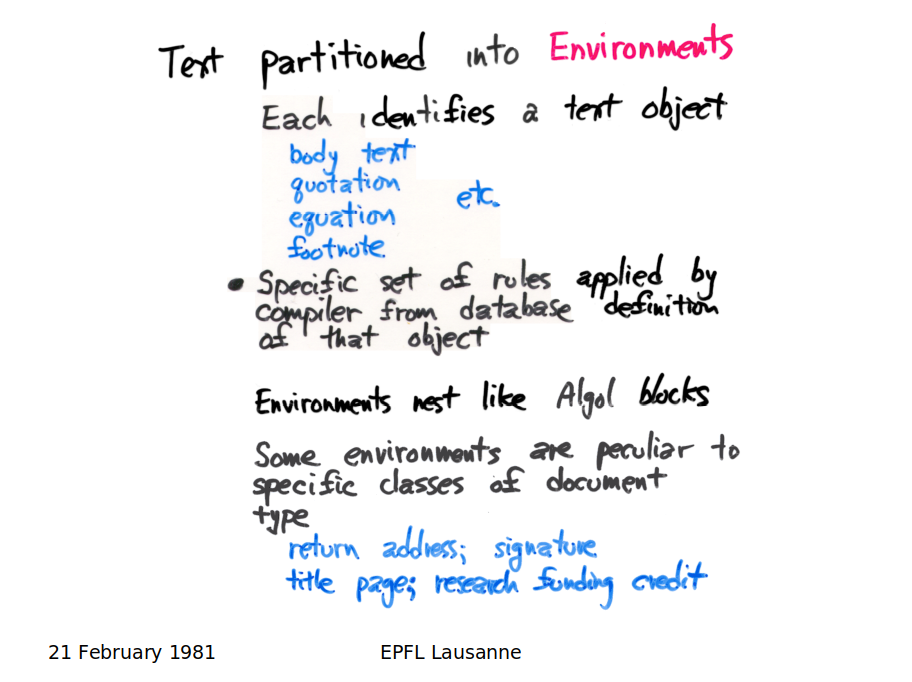 Text partitioned into Environments
Each identifies a text object
body text
quotation
equation
footnote
etc.
• Specific set of rules applied by
compiler from database definition
of that object
Environments nest like Algol blocks
Some environments are peculiar to
specific classes of document
type
return address; signature
title page; research funding credit
21 February 1981
EPFL Lausanne